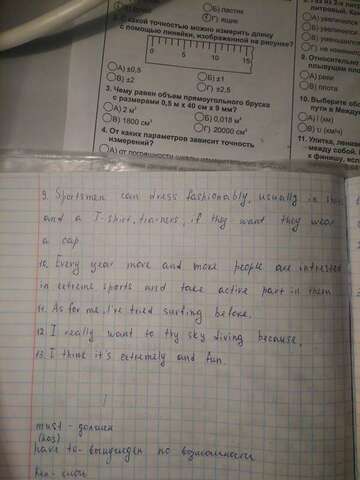 Б) ластик
Г) ящик
2. С какой точностью можно измерить длину
с помощью линейки, изображенной на рисунке?
0 5 10 15
А) ±0,5
Б) ±1
В) ±2
Г) ±2,5
3. Чему равен объем прямоугольного бруска
с размерами 0,5 м х 40 см х 9 мм?
А) 2 м³
Б) 0,018 м³
В) 1800 см³
Г) 20000 см³
4. От каких параметров зависит точность
измерений?
А) от погрешности шкалы
литровый. Как
А) увеличится
Б) увеличится
В) уменьшится
Г) не изменится
9. Относительно
плывущем пл
А) реки
В) плота
10. Выберите об
пути и Между
А) l (км)
В) υ (км/ч)
11. Улитка,
между собой.
к финишу, если
9. Sportsmen can dress fashionably, usually in
and a T-shirt, trainers, if they want they wear
a cap.
10. Every year more and more people are
in extreme sports and take active part in them
11. As for me, I've tried surfing before.
12. I really want to thy sky diving because,
13. I think it's extremely and fun.
must - должен
have to - вынужден по возможности